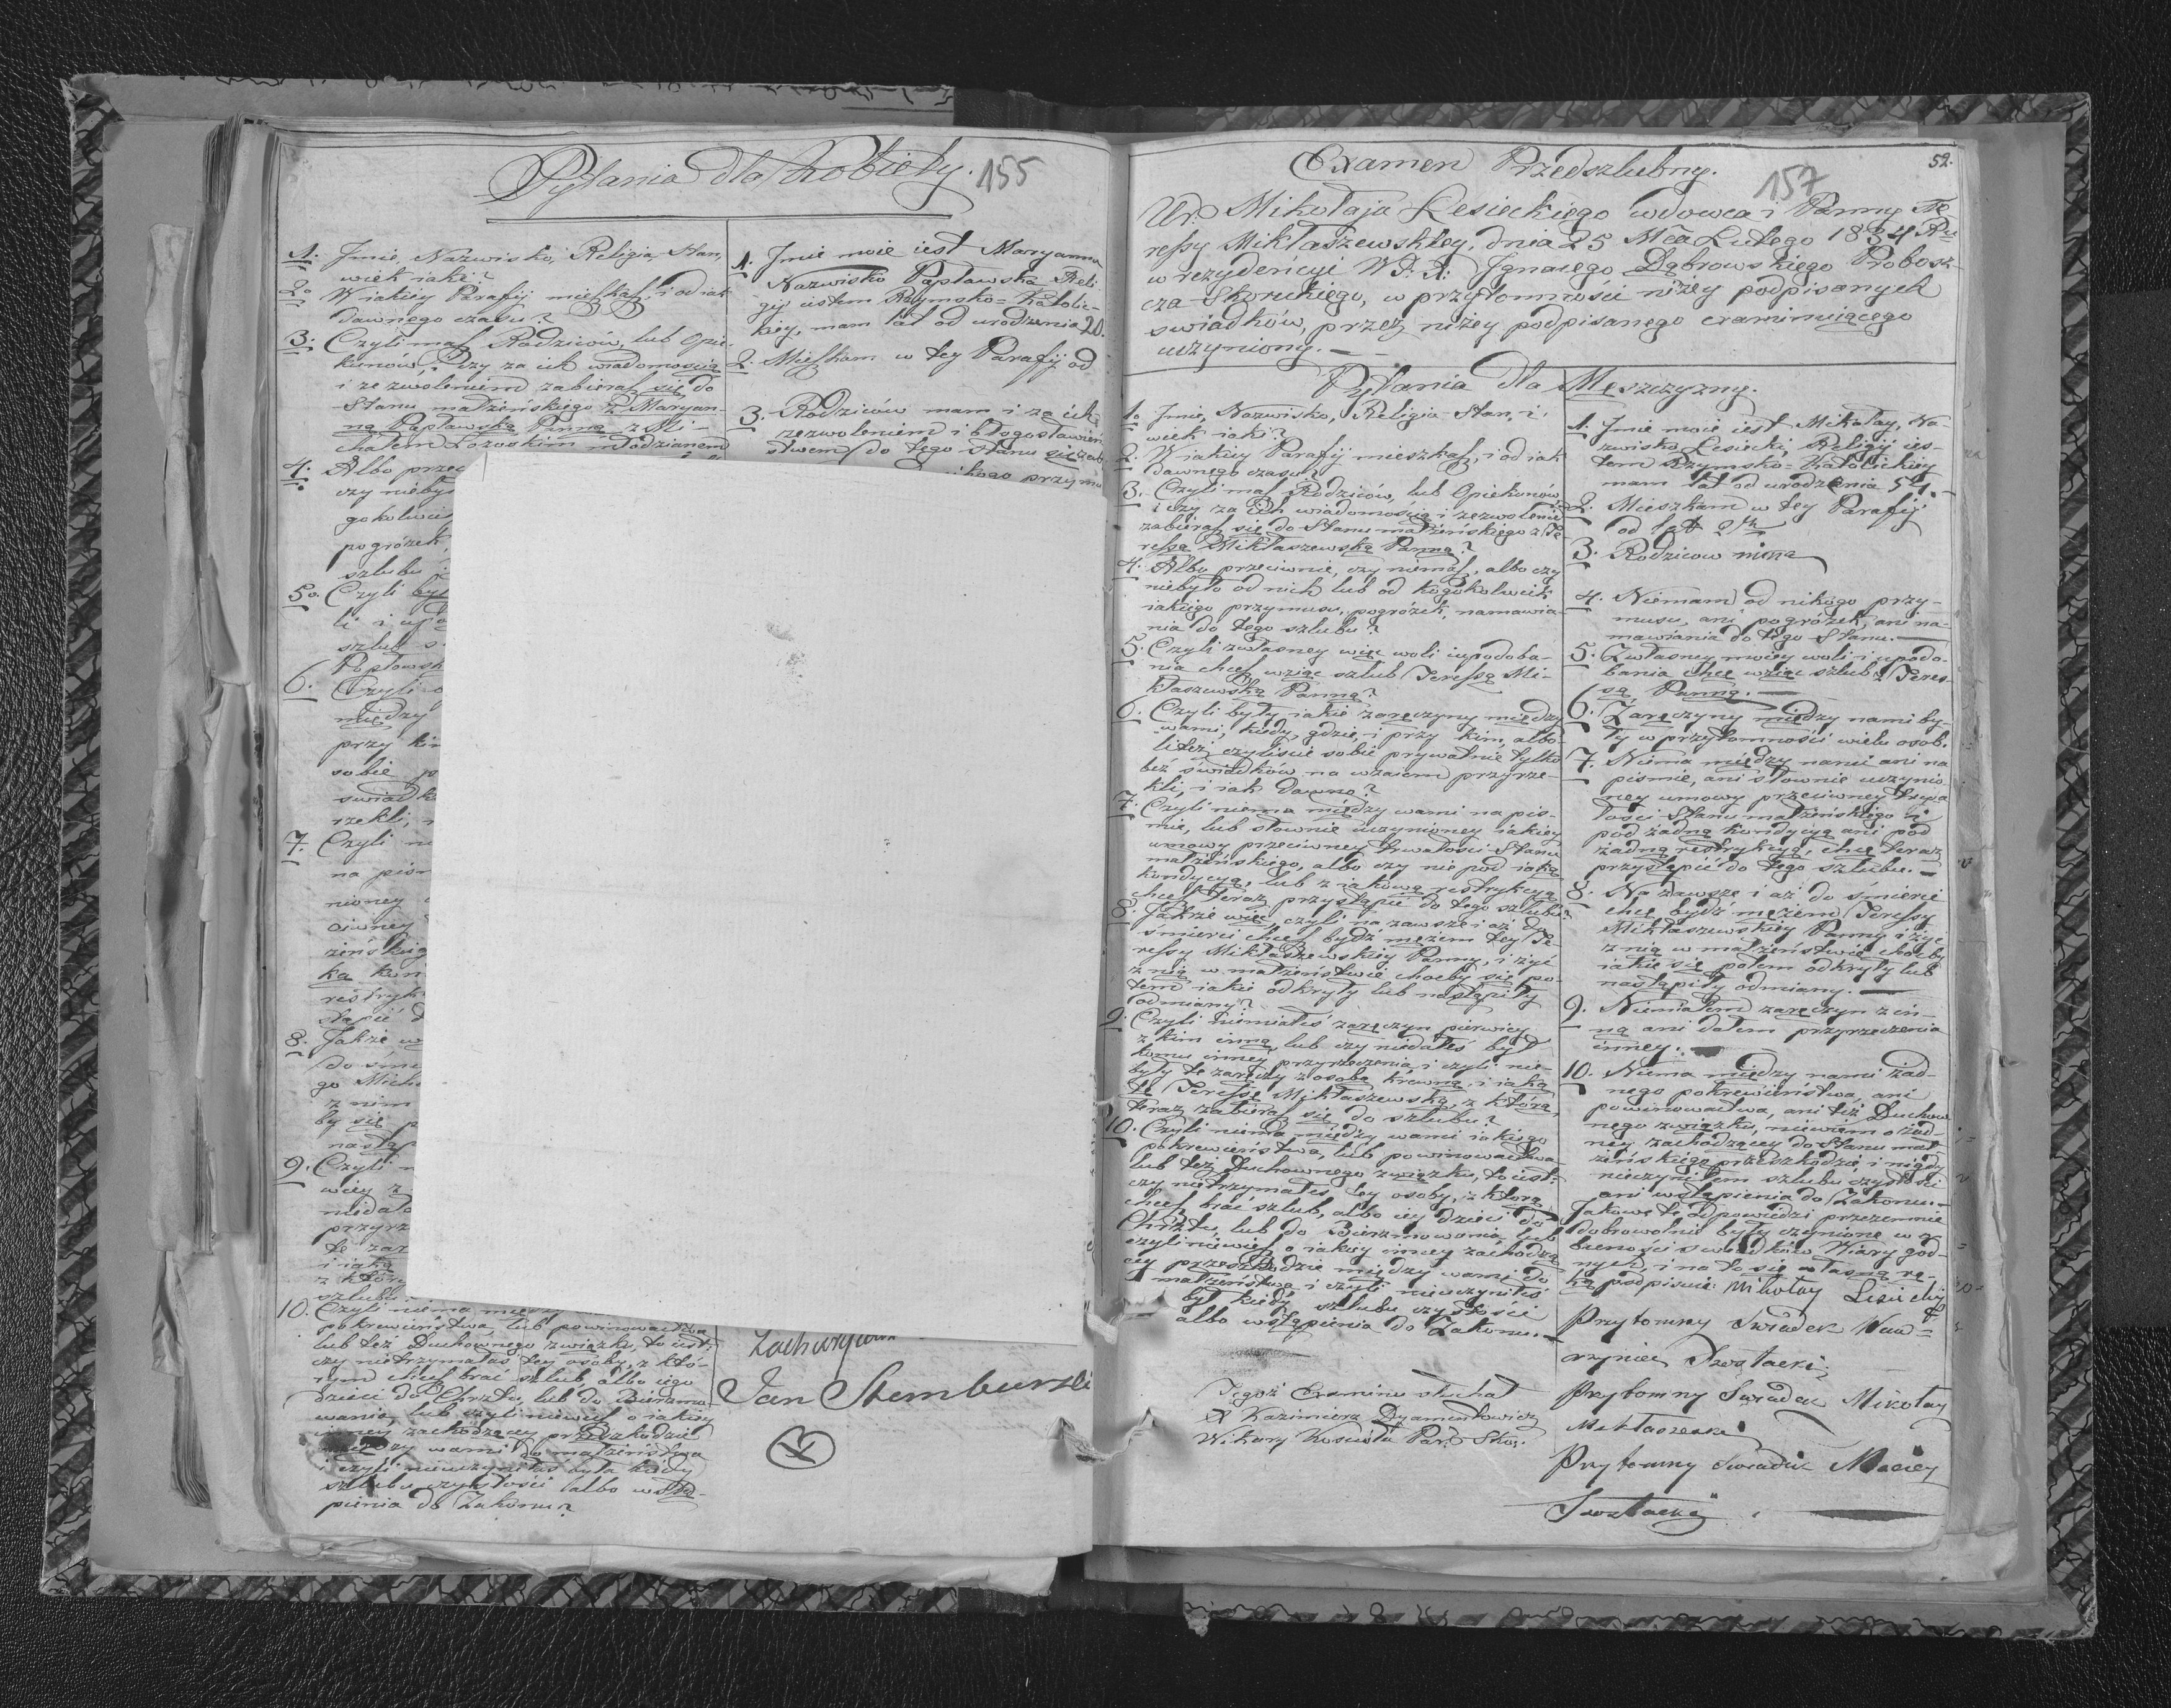 Pytania dla Kobiety. 155
1. Jmie, Nazwisko, Religia, Stan,
wiek iaki?
2. W iakiey Parafij mieszkasz, i od iak
dawnego czasu?
3. Czyli masz Rodziców, lub Opie-
kunów, i czy za ich wiadomością
i zezwoleniem zabierasz się do
Stanu małżeńskiego z Maryan-
ną Popławską Panną z Mi-
chałem młodzianem
4. Albo przec
czy nieby
gokolwiek
pogróżek,
szlubu
5. Czyli
li i upo
szlub
Popławsk
6. Czyli
między
przy kim
sobie
świadk
rzekli,
7. Czyli
na piśm
nioney
ciwney
żeńskieg
ką kon
restryk
stąpić
8. Jakże w
do śmie
go Micha
z nim
by się
nastąp
9. Czyli n
wiey z
niedała
przyrz
te zar
i iaką
z któr
szlubu
10. Czyli niema między
pokrewieństwa, lub powinowactwa
lub też Duchownego związku, to iest:
czy nietrzymałaś tey osoby, z któ-
rym chcesz brać szlub, albo iego
dzieci do Chrztu, lub do Bierzmo-
wania, lub czyli niewiesz o iakiey
inney zachodzącey przeszkodzie
między wami do małżeństwa
i czyli nieuczyniłaś była kiedy
szlubu czystości albo wstą-
pienia do Zakonu?
1. Jmie moie iest Maryanna
Nazwisko Popławska Reli
gij iestem Rzymsko=Katolic-
kiey, mam lat od urodzenia 20.
2. Mieszkam w tey Parafij od
3. Rodziców mam i za ich
zezwoleniem i błogosławień
stwem do tego Stanu się zab
ikogo przymu
Jan Stemburski
Examen Przedszlubny. 157 52.
Ur: Mikołaja Lesieckiego wdowca i Panny Te
ressy Mikłaszewskiey, dnia 25 Mca Lutego 1834 Ru
w rezydencyi W: X: Jgnacego Dąbrowskiego Probosz-
cza Skoruckiego, w przytomności niżey podpisanych
świadków, przez niżey podpisanego examinuiącego
uczyniony.
Pytania dla Męszczyzny.
1. Jmie, Nazwisko, Religia, Stan, i
wiek iaki?
2. W iakiey Parafij mieszkasz, i od iak
dawnego czasu?
3. Czyli masz Rodziców, lub Opiekunów,
i czy za ich wiadomością i zezwolenie
zabierasz się do Stanu małżeńskiego z Te
ressą Mikłaszewską Panną?
4. Albo przeciwnie, czy niemasz, albo czy
niebyło od nich lub od kogokolwiek
iakiego przymusu, pogróżek, namawia-
nia do tego szlubu?
5. Czyli z własney więc woli i upodoba-
nia chcesz wziąc szlub z Teressą Mi-
kłaszewską Panną?
6. Czyli były iakie zaręczyny między
wami, kiedy, gdzie, i przy kim, albo
li też czyliście sobie prywatnie tylko
bez świadków na wzaiem przyrze-
kli, i iak dawno?
7. Czyli niema między wami na piś-
mie, lub słownie uczynioney iakiey
umowy przeciwney trwałości Stanu
małżeńskiego, albo czy nie pod iaką
kondycyą, lub z iakową restrykcyą
chcesz teraz przystąpić do tego szlubu?
8. Jakże więc, czyli na zawsze i aż do
śmierci chcesz bydź mężem tey Te-
ressy Mikłaszewskiey Panny, i żyć
z nią w małżeństwie choćby się po-
tem iakie odkryły lub nastąpiły
odmiany?
9. Czyli niemiałeś zaręczyn pierwiey
z kim inną, lub czy niedałeś był
komu inney przyrzeczenia, i czyli nie-
były te zaręczy z osobą krewną, i iaką
tę Teressę Mikłaszewską, z którą
teraz zabierasz się do szlubu?
10. Czyli niema między wami iakiego
pokrewieństwa, lub powinowactwa
lub też Duchownego związku, to iest:
czy nietrzymałeś tey osoby, z którą
chcesz brać szlub, albo iey dzieci do
Chrztu, lub do Bierzmowania, lub
czyli niewiesz o iakiey inney zachodzą
cey przeszkodzie między wami do
małżeństwa i czyli nieuczyniłeś
był kiedy szlubu czystości
albo wstąpienia do Zakonu.
Tegoż Examinu słuchał
X Kazimierz Dyamentkowicz
Wikary Kościoła Par: Sko:
1. Jmie moie iest Mikołay, Na-
zwisko Lesiecki, Religij ies-
tem Rzymsko=Katolickiey
mam lat od urodzenia 54.
2. Mieszkam w tey Parafij
od lat 2ch
3. Rodzicow nima
4. Niemam od nikogo przy-
musu, ani pogróżek, ani na-
mawiania do tego Stanu.
5. Z własney moiey woli i upodo-
bania chcę wziąc szlub z Teres-
są Panną.
6. Zaręczyny między nami by-
ły w przytomności wielu osob.
7. Niema między nami ani na
piśmie, ani słownie uczynio
ney umowy przeciwney trwa
łości Stanu małżeńskiego i
pod żadną kondycyą ani pod
żadną restrykcyą, chcę teraz
przystąpić do tego szlubu.
8. Na zawsze i aż do śmierci
chcę bydź mężem Teressy
Mikłaszewskiey Panny i żyć
z nią w małżeństwie choćby
iakie się potem odkryły lub
nastąpiły odmiany.
9. Niemiałem zaręczyn z in-
ną ani dałem przyrzeczenia
inney.
10. Niema między nami żad-
nego pokrewieństwa, ani
powinowactwa, ani też Duchow
nego związku, niewiem o żad-
ney zachodzącey do Stanu mał
żeńskiego przeszkodzie i nigdy
nieczyniłem szlubu czystości
ani wstąpienia do Zakonu.
Jakowe te odpowiedzi przezemnie
dobrowolnie były czynione w o
becności świadków Wiary god-
nych, i na to się własną rę-
ką podpisuię: Mikołay Lesiecky
Przytomny Swiadek Waw=
rzyniec
Przytomny Swiadek Mikołay
Przytomny Swiadek Maciey